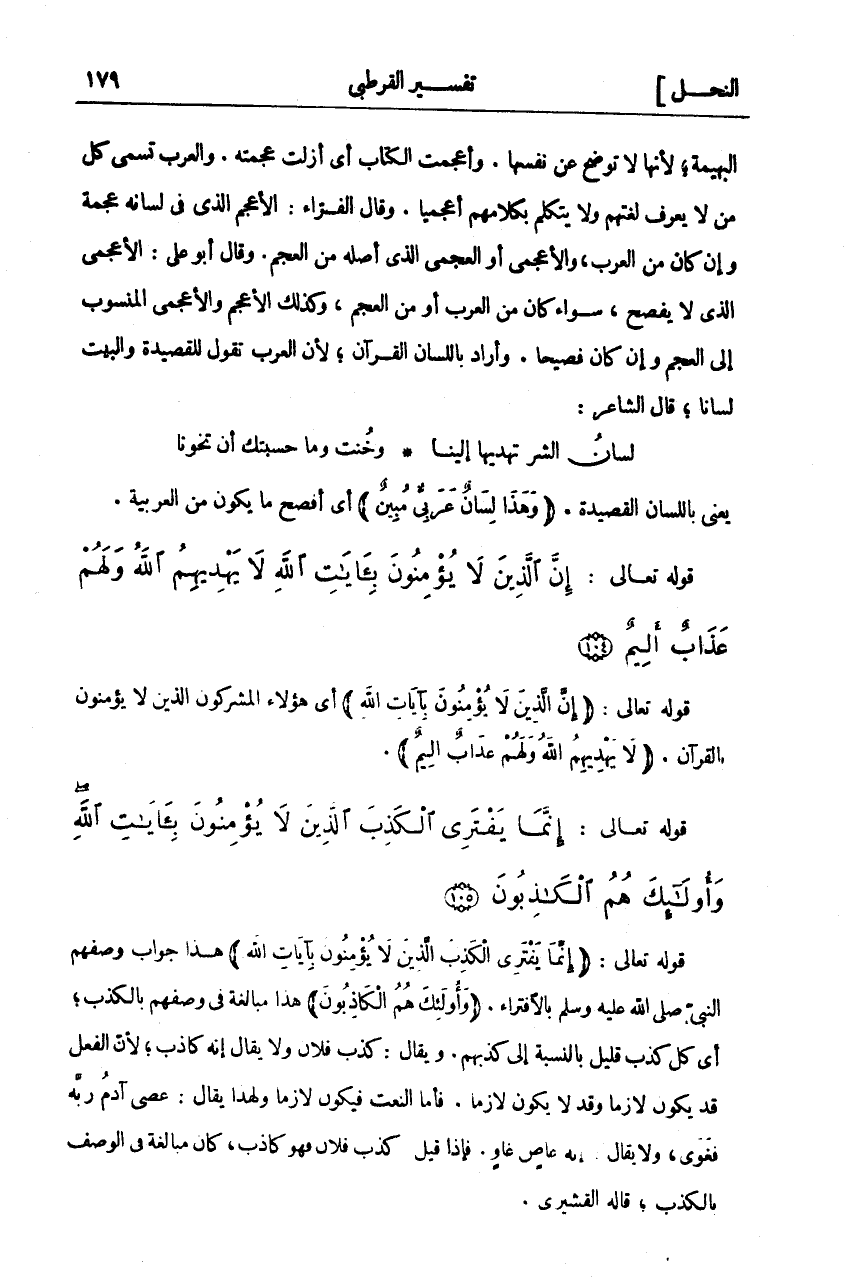 النحـــل] تفســـير القرطبى ١٧٩
البهيمة؛ لأنها لا توضح عن نفسها . وأعجمت الكتاب أى أزلت عجمته . والعرب تسمى كل
من لا يعرف لغتهم ولا يتكلم بكلامهم أعجميا . وقال الفـرّاء : الأعجم الذى فى لسانه عجمة
و إن كان من العرب، والأعجمى أو العجمى الذى أصله من العجم. وقال أبو على : الأعجمى
الذى لا يفصح ، سـواء كان من العرب أو من العجم ، وكذلك الأعجم والأعجمى المنسوب
إلى العجم و إن كان فصيحا . وأراد باللسان القـرآن ؛ لأن العرب تقول للقصيدة والبيت
لسانا ؛ قال الشاعر :
لسانُ الشر تهديها إلينـا * وخُنت وما حسبتك أن تخونا
يعنى باللسان القصيدة . ﴿ وَهَذَا لِسَانٌ عَرَبِىٌّ مُبِينٌ ﴾ أى أفصح ما يكون من العربية .
قوله تعـالى : إِنَّ ٱلَّذِينَ لَا يُؤْمِنُونَ بِـَٔايَـٰتِ ٱللَّهِ لَا يَهْدِيهِمُ ٱللَّهُ وَلَهُمْ
عَذَابٌ أَلِيمٌ ١٠٤
قوله تعالى : ﴿ إِنَّ الَّذِينَ لَا يُؤْمِنُونَ بِآيَاتِ اللَّهِ ﴾ أى هؤلاء المشركون الذين لا يؤمنون
بالقرآن . ﴿ لَا يَهْدِيهِمُ اللَّهُ وَلَهُمْ عَذَابٌ أَلِيمٌ ﴾ .
قوله تعـالى : إِنَّمَا يَفْتَرِى ٱلْكَذِبَ ٱلَّذِينَ لَا يُؤْمِنُونَ بِـَٔايَـٰتِ ٱللَّهِۖ
وَأُولَـٰٓئِكَ هُمُ ٱلْكَـٰذِبُونَ ١٠٥
قوله تعالى : ﴿ إِنَّمَا يَفْتَرِى الْكَذِبَ الَّذِينَ لَا يُؤْمِنُونَ بِآيَاتِ اللهِ ﴾ هـذا جواب وصفهم
النبىّ صلى الله عليه وسلم بالأفتراء . ﴿وَأُولَئِكَ هُمُ الْكَاذِبُونَ﴾ هذا مبالغة فى وصفهم بالكذب؛
أى كل كذب قليل بالنسبة إلى كذبهم. و يقال : كذب فلان ولا يقال إنه كاذب؛ لأنّ الفعل
قد يكون لازما وقد لا يكون لازما . فأما النعت فيكون لازما ولهذا يقال : عصى آدمُ ربَّه
فغَوى، ولا يقال إنه عاصٍ غاوٍ . فإذا قيل كذب فلان فهو كاذب، كان مبالغة فى الوصف
بالكذب ؛ قاله القشيرى .